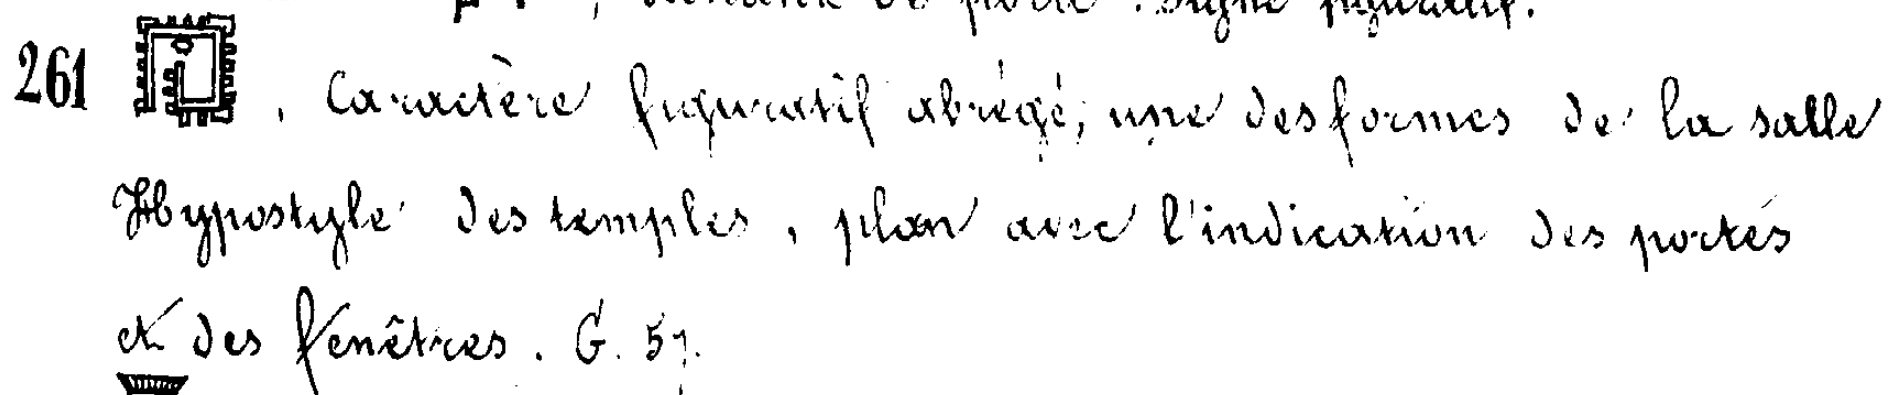 battant de porte. Signe figuratif.
261 , Caractère figuratif abrégé; une des formes de la salle
Hypostyle des temples, plan avec l'indication des portes
et des fenêtres. G. 57.